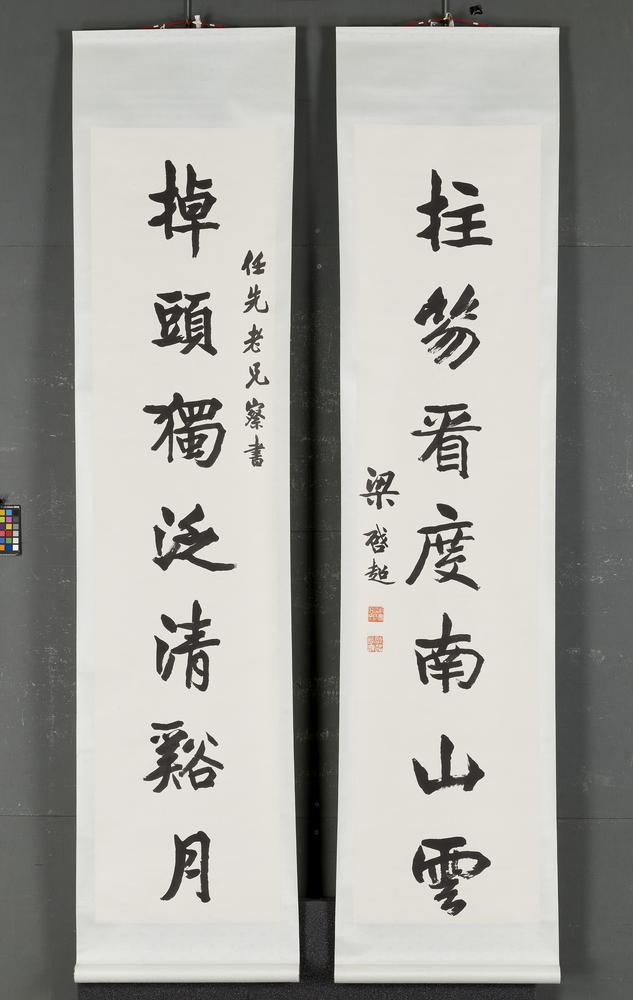 任先老兄察書
掉頭獨泛清谿月
拄笏看度南山雲
梁啓超